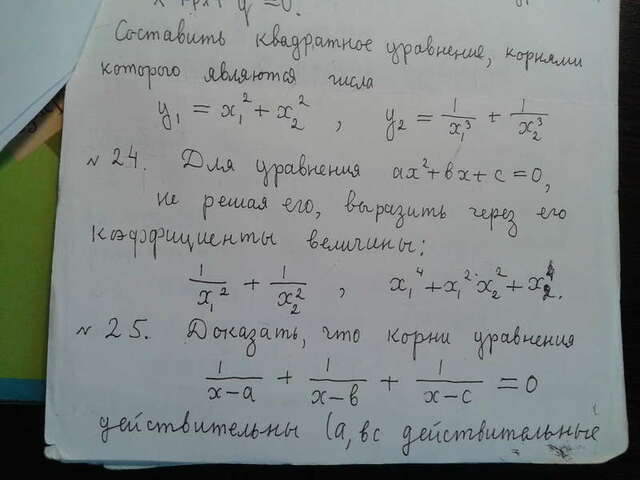 x²+px+q=0.
Составить квадратное уравнение, корнями
которого являются числа
y₁ = x₁² + x₂² , y₂ = 1/x₁³ + 1/x₂³
N 24. Для уравнения ax²+bx+c=0,
не решая его, выразить через его
коэффициенты величины:
1/x₁² + 1/x₂² , x₁⁴+x₁²·x₂²+x₂⁴.
N 25. Доказать, что корни уравнения
1/(x-a) + 1/(x-b) + 1/(x-c) = 0
действительны (a, bc действительные